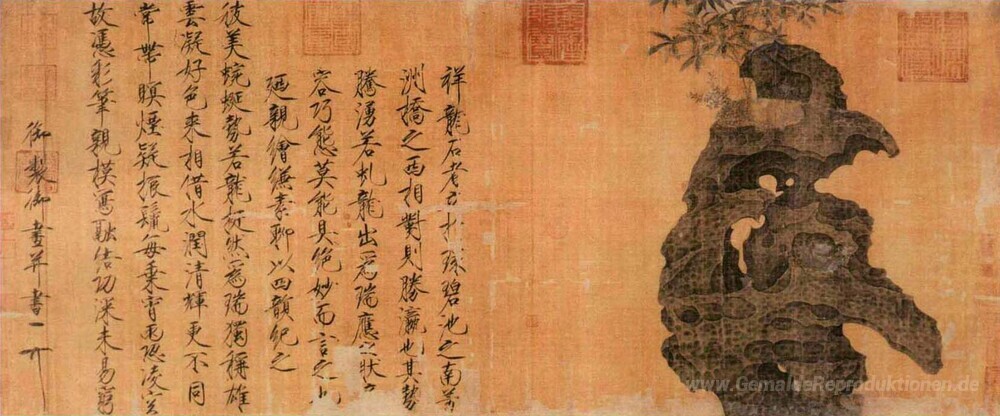 祥龍石者立於環碧池之南芳
洲橋之西相對則勝瀛也其勢
騰湧若虬龍出為瑞應之狀
容巧態莫能具絕妙而言之
廼親繪縑素聊以四韻紀之
彼美蜿蜒勢若龍挺然為瑞獨稱雄
雲凝好色來相借水潤清輝更不同
常帶暝煙疑振鬣每乘宵雨恐凌空
故憑彩筆親模寫融結功深未易窮
御製御畫并書
www.GemäldeReproduktionen.de